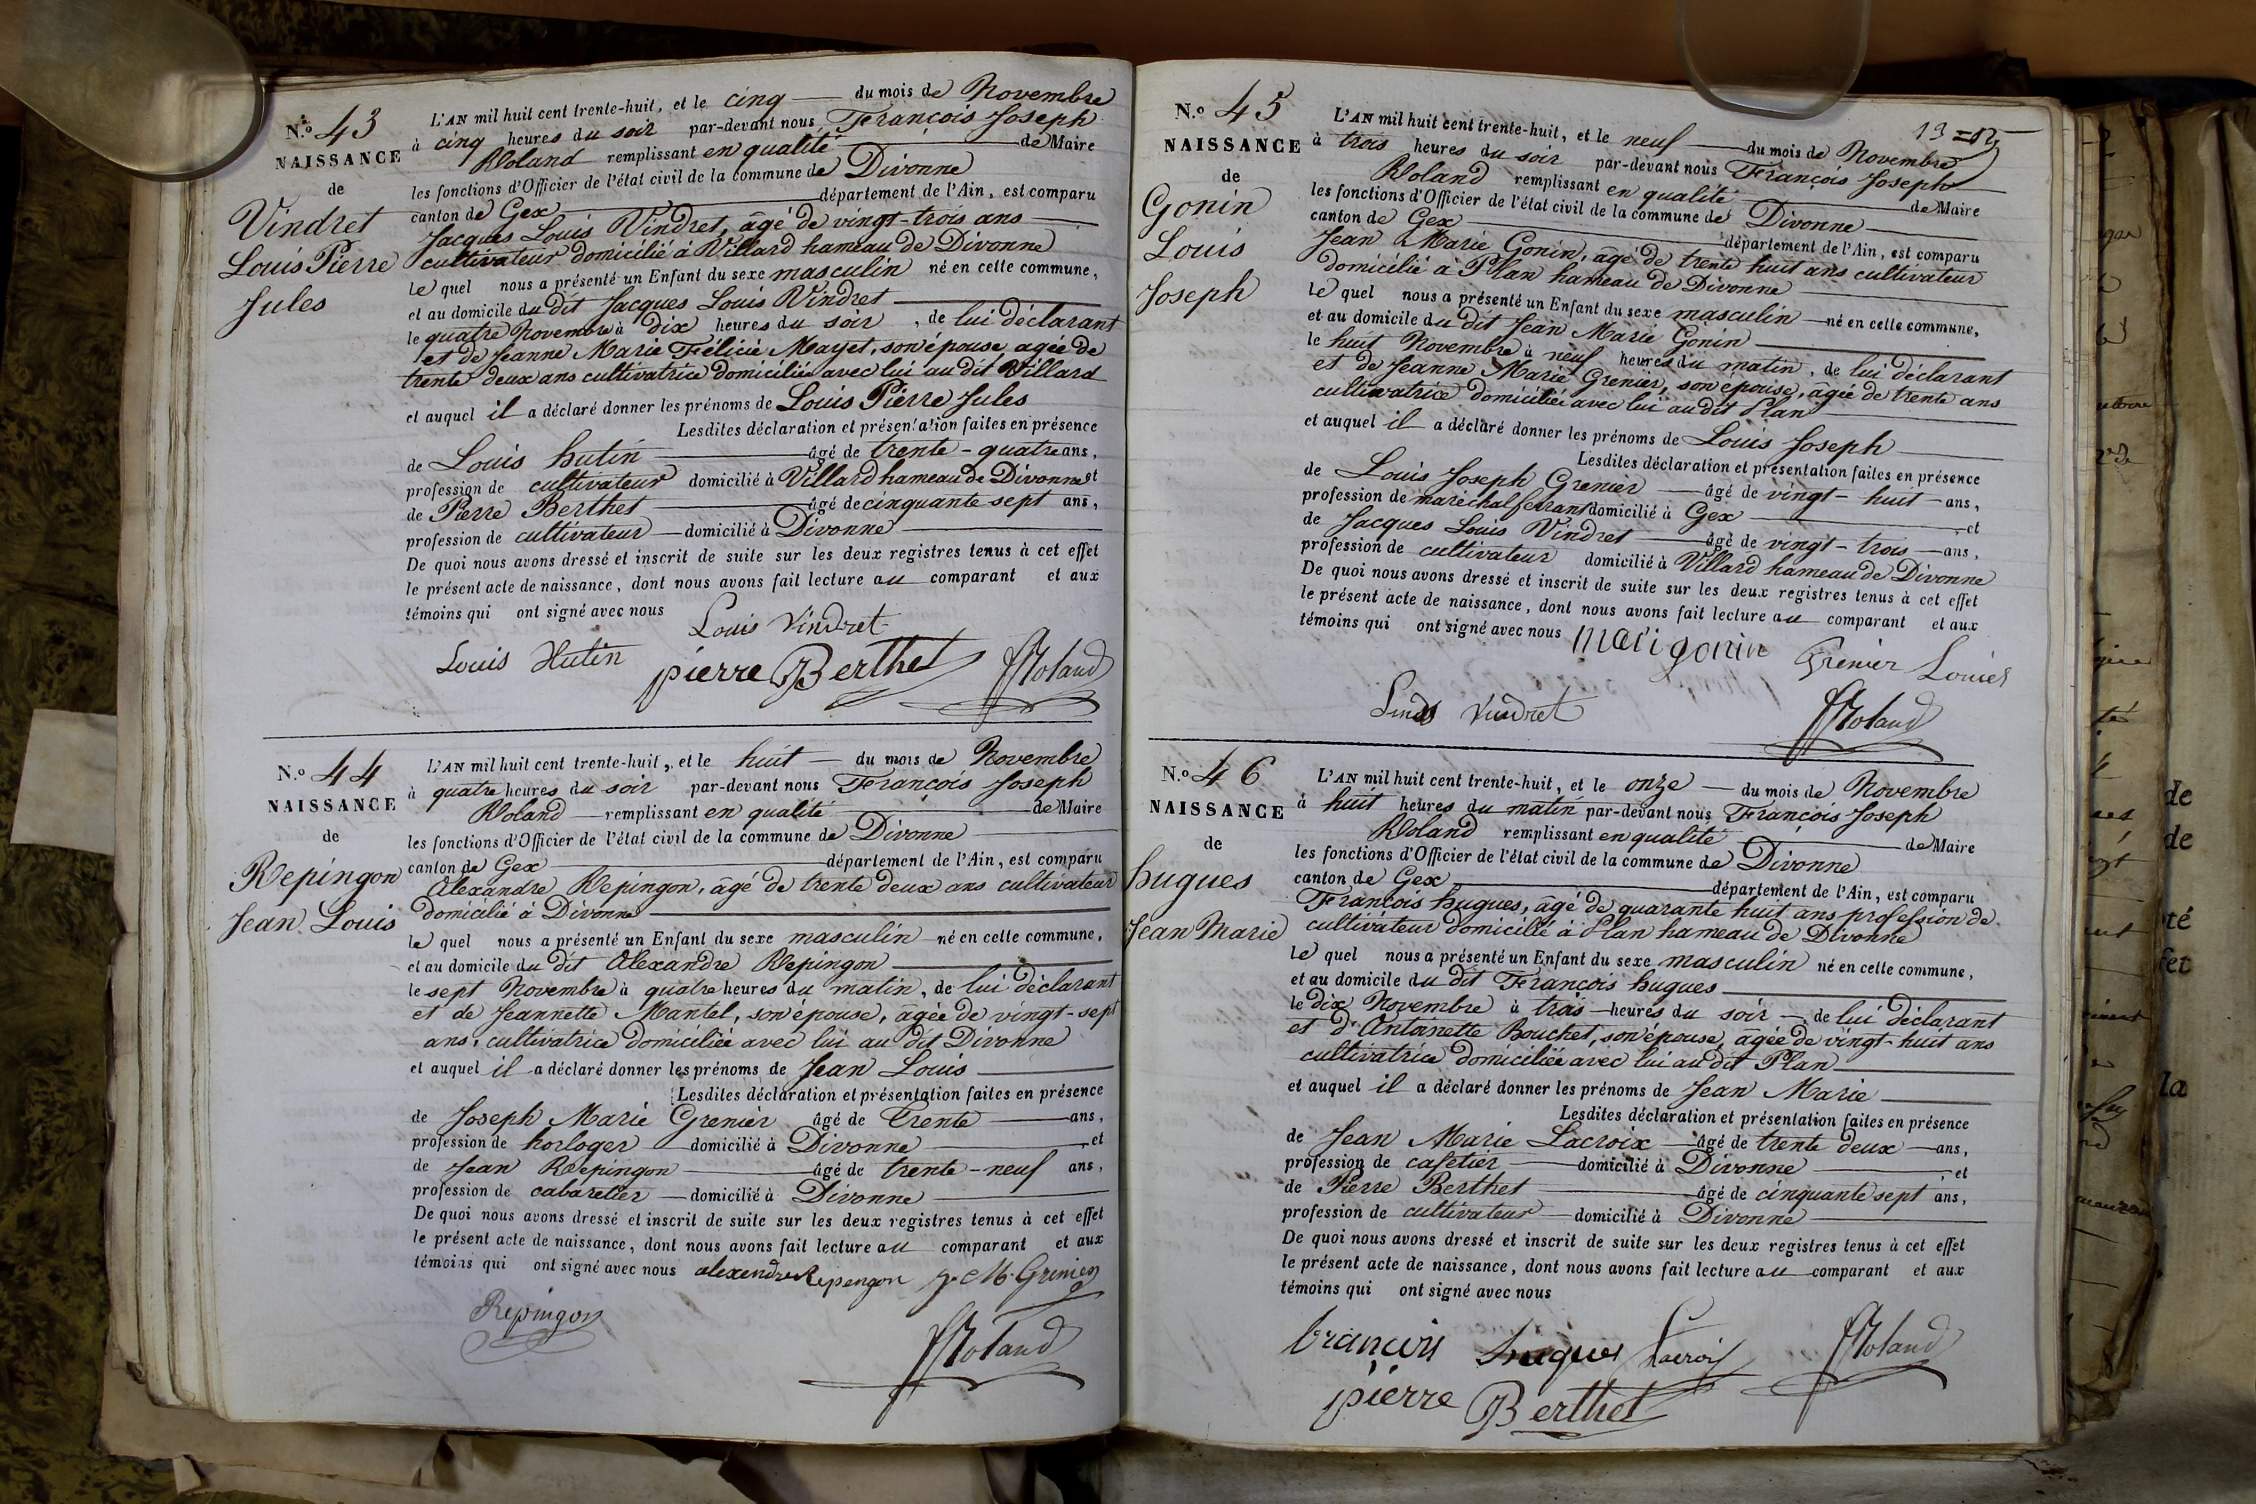 N.º 43
NAISSANCE
de
Vindret
Louis Pierre
Jules
L'AN mil huit cent trente-huit, et le cinq du mois de Novembre
à cinq heures du soir par-devant nous François Joseph
Roland remplissant en qualité de Maire
les fonctions d'Officier de l'état civil de la commune de Divonne
canton de Gex département de l'Ain, est comparu
Jacques Louis Vindret, âgé de vingt-trois ans
cultivateur domicilié à Villard hameau de Divonne
le quel nous a présenté un Enfant du sexe masculin né en cette commune,
et au domicile du dit Jacques Louis Vindret
le quatre Novembre à dix heures du soir, de lui déclarant
et de Jeanne Marie Félicie Mayet, son épouse, agée de
trente deux ans cultivatrice domiciliée avec lui au dit Villard
et auquel il a déclaré donner les prénoms de Louis Pierre Jules
Lesdites déclaration et présentation faites en présence
de Louis hutin âgé de trente-quatre ans,
profession de cultivateur domicilié à Villard hameau de Divonne et
de Pierre Berthet âgé de cinquante sept ans,
profession de cultivateur domicilié à Divonne
De quoi nous avons dressé et inscrit de suite sur les deux registres tenus à cet effet
le présent acte de naissance, dont nous avons fait lecture au comparant et aux
témoins qui ont signé avec nous
Louis Vindret
Louis Hutin pierre Berthet JRoland
N.º 44
NAISSANCE
de
Repingon
Jean Louis
L'AN mil huit cent trente-huit, et le huit du mois de Novembre
à quatre heures du soir par-devant nous François Joseph
Roland remplissant en qualité de Maire
les fonctions d'Officier de l'état civil de la commune de Divonne
canton de Gex département de l'Ain, est comparu
Alexandre Repingon, âgé de trente deux ans cultivateur
domicilié à Divonne
le quel nous a présenté un Enfant du sexe masculin né en cette commune,
et au domicile du dit Alexandre Repingon
le sept Novembre à quatre heures du matin, de lui déclarant
et de Jeannette Mantel, son épouse, âgée de vingt-sept
ans, cultivatrice domiciliée avec lui au dit Divonne
et auquel il a déclaré donner les prénoms de Jean Louis
Lesdites déclaration et présentation faites en présence
de Joseph Marie Grenier âgé de Trente ans,
profession de horloger domicilié à Divonne et
de Jean Repingon âgé de trente-neuf ans,
profession de cabaretier domicilié à Divonne
De quoi nous avons dressé et inscrit de suite sur les deux registres tenus à cet effet
le présent acte de naissance, dont nous avons fait lecture au comparant et aux
témoins qui ont signé avec nous alexendre Repengon J. M. Grenier
Repingon
JRoland
N.º 45
NAISSANCE
de
Gonin
Louis
Joseph
13
L'AN mil huit cent trente-huit, et le neuf du mois de Novembre
à trois heures du soir par-devant nous François Joseph
Roland remplissant en qualité de Maire
les fonctions d'Officier de l'état civil de la commune de Divonne
canton de Gex département de l'Ain, est comparu
Jean Marie Gonin, âgé de trente huit ans cultivateur
domicilié à Plan hameau de Divonne
le quel nous a présenté un Enfant du sexe masculin né en cette commune,
et au domicile du dit Jean Marie Gonin
le huit Novembre à neuf heures du matin, de lui déclarant
et de Jeanne Marie Grenier, son épouse, âgée de trente ans
cultivatrice domiciliée avec lui au dit Plan
et auquel il a déclaré donner les prénoms de Louis Joseph
Lesdites déclaration et présentation faites en présence
de Louis Joseph Grenier âgé de vingt-huit ans,
profession de maréchal ferrant domicilié à Gex et
de Jacques Louis Vindret âgé de vingt-trois ans,
profession de cultivateur domicilié à Villard hameau de Divonne
De quoi nous avons dressé et inscrit de suite sur les deux registres tenus à cet effet
le présent acte de naissance, dont nous avons fait lecture au comparant et aux
témoins qui ont signé avec nous mari gonin Grenier Louies
Vindret JRoland
N.º 46
NAISSANCE
de
hugues
Jean Marie
L'AN mil huit cent trente-huit, et le onze du mois de Novembre
à huit heures du matin par-devant nous François Joseph
Roland remplissant en qualité de Maire
les fonctions d'Officier de l'état civil de la commune de Divonne
canton de Gex département de l'Ain, est comparu
François hugues, âgé de quarante huit ans profession de
cultivateur domicilié à Plan hameau de Divonne
le quel nous a présenté un Enfant du sexe masculin né en cette commune,
et au domicile du dit François hugues
le dix Novembre à trois heures du soir, de lui déclarant
et d'Antanette Bouchet, son épouse, âgée de vingt-huit ans
cultivatrice domiciliée avec lui au dit Plan
et auquel il a déclaré donner les prénoms de Jean Marie
Lesdites déclaration et présentation faites en présence
de Jean Marie Lacroix âgé de trente deux ans,
profession de cafetier domicilié à Divonne et
de Pierre Berthet âgé de cinquante sept ans,
profession de cultivateur domicilié à Divonne
De quoi nous avons dressé et inscrit de suite sur les deux registres tenus à cet effet
le présent acte de naissance, dont nous avons fait lecture au comparant et aux
témoins qui ont signé avec nous
françois hugues Lacroix JRoland
pierre Berthet
de
de
té
fet
la